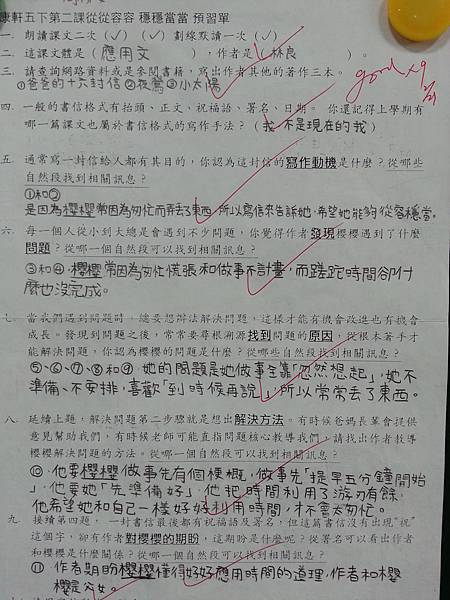 康軒五下第二課從從容容 穩穩當當 預習單
一. 朗讀課文二次(✓)(✓) 劃線默讀一次(✓)
二. 這課文體是(應用文),作者是(林良)。
三. 請查詢網路資料或是參閱書籍,寫出作者其他的著作三本。
①爸爸的十六封信②夜鶯③小太陽
good x9
四. 一般的書信格式有抬頭、正文、祝福語、署名、日期。 你還記得上學期有
哪一篇課文也屬於書信格式的寫作手法?(我不是現在的我)
五. 通常寫一封信給人都有其目的,你認為這封信的寫作動機是什麼?從哪些
自然段找到相關訊息?
①和②
是因為櫻櫻常因為匆忙而弄丟了東西,所以寫信來告訴她,希望她能夠從容穩當。
六. 每一個人從小到大總是會遇到不少問題,你覺得作者發現櫻櫻遇到了什麼
問題?從哪一個自然段可以找到相關訊息?
③和④,櫻櫻常因為匆忙慌張和做事不計畫,而蹉跎時間卻什
麼也沒完成。
七. 當我們遇到問題時,總要想辦法解決問題,這樣才能有機會改進也有機會
成長。發現到問題之後,常常要尋根溯源找到問題的原因,從根本著手才
能解決問題,你認為櫻櫻的問題是什麼?從哪些自然段找到相關訊息?
⑤、⑥、⑦、⑧和⑨ 她的問題是她做事全靠「忽然想起」,她不
準備、不安排,喜歡「到時候再說」,所以常常丟了東西。
八. 延續上題,解決問題第二步驟就是想出解決方法。有時候爸媽長輩會提供
意見幫助我們,有時候老師可能直指問題核心教導我們。請找出作者教導
櫻櫻解決問題的方法。從哪一個自然段可以找到相關訊息?
⑩,他要櫻櫻做事先有個梗概,做事先「提早五分鐘開始
」,他要她「先準備好」,他把時間利用了游刃有餘,
他希望她和自己一樣好好利用時間,才不會太匆忙。
九 接續第四題, 一封書信最後都有祝福語及署名,但這篇書信沒有出現"祝"
這個字,卻有作者對櫻櫻的期盼,這期盼是什麼呢?從署名可以看出作者
和櫻櫻是什麼關係?從哪一個自然段可以找到相關訊息?
⑪ 作者期盼櫻櫻懂得好好應用時間的道理,作者和櫻
櫻是父女。